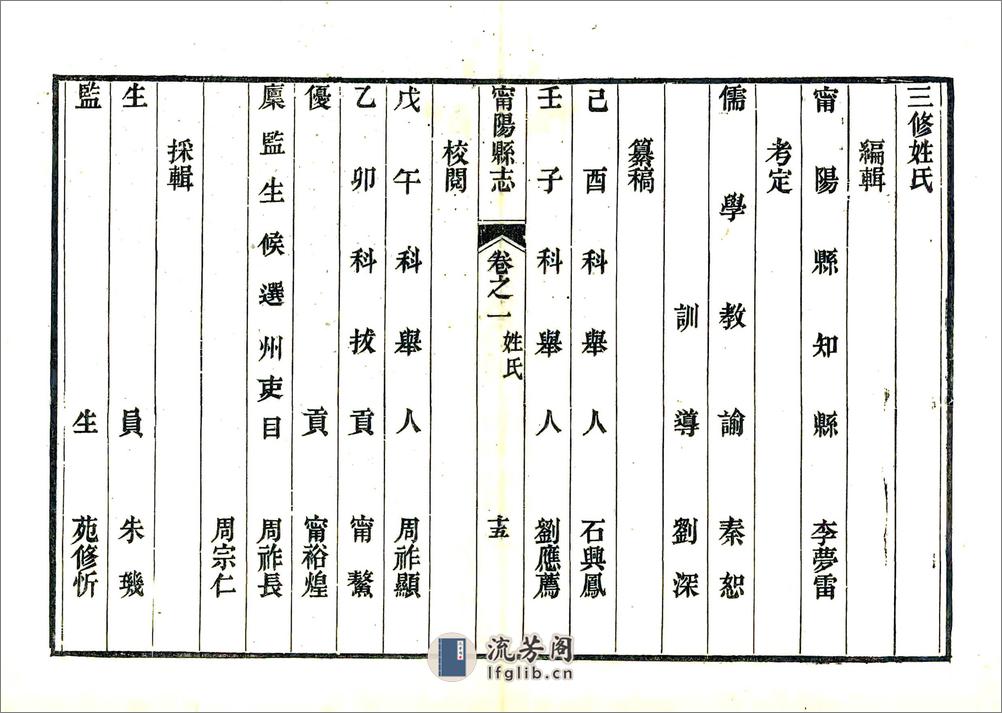 三修姓氏
編輯
甯陽縣知縣 李夢雷
考定
儒學教諭 秦恕
訓導 劉深
纂稿
己酉科舉人 石興鳳
壬子科舉人 劉應薦
甯陽縣志 卷之一 姓氏 十五
校閱
戊午科舉人 周祚顯
乙卯科拔貢 甯鰲
優貢 甯裕煌
廩監生候選州吏目 周祚長
周宗仁
採輯
生員 朱璣
監生 苑修忻
流芳阁
lfglib.cn